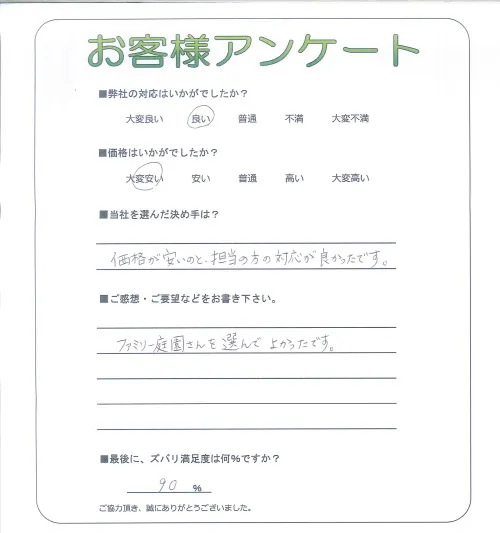 お客様アンケート
■弊社の対応はいかがでしたか？
大変良い 良い 普通 不満 大変不満
■価格はいかがでしたか？
大変安い 安い 普通 高い 大変高い
■当社を選んだ決め手は？
価格が安いのと、担当の方の対応が良かったです。
■ご感想・ご要望などをお書き下さい。
ファミリー庭園さんを選んで よかったです。
■最後に、ズバリ満足度は何％ですか？
90 ％
ご協力頂き、誠にありがとうございました。